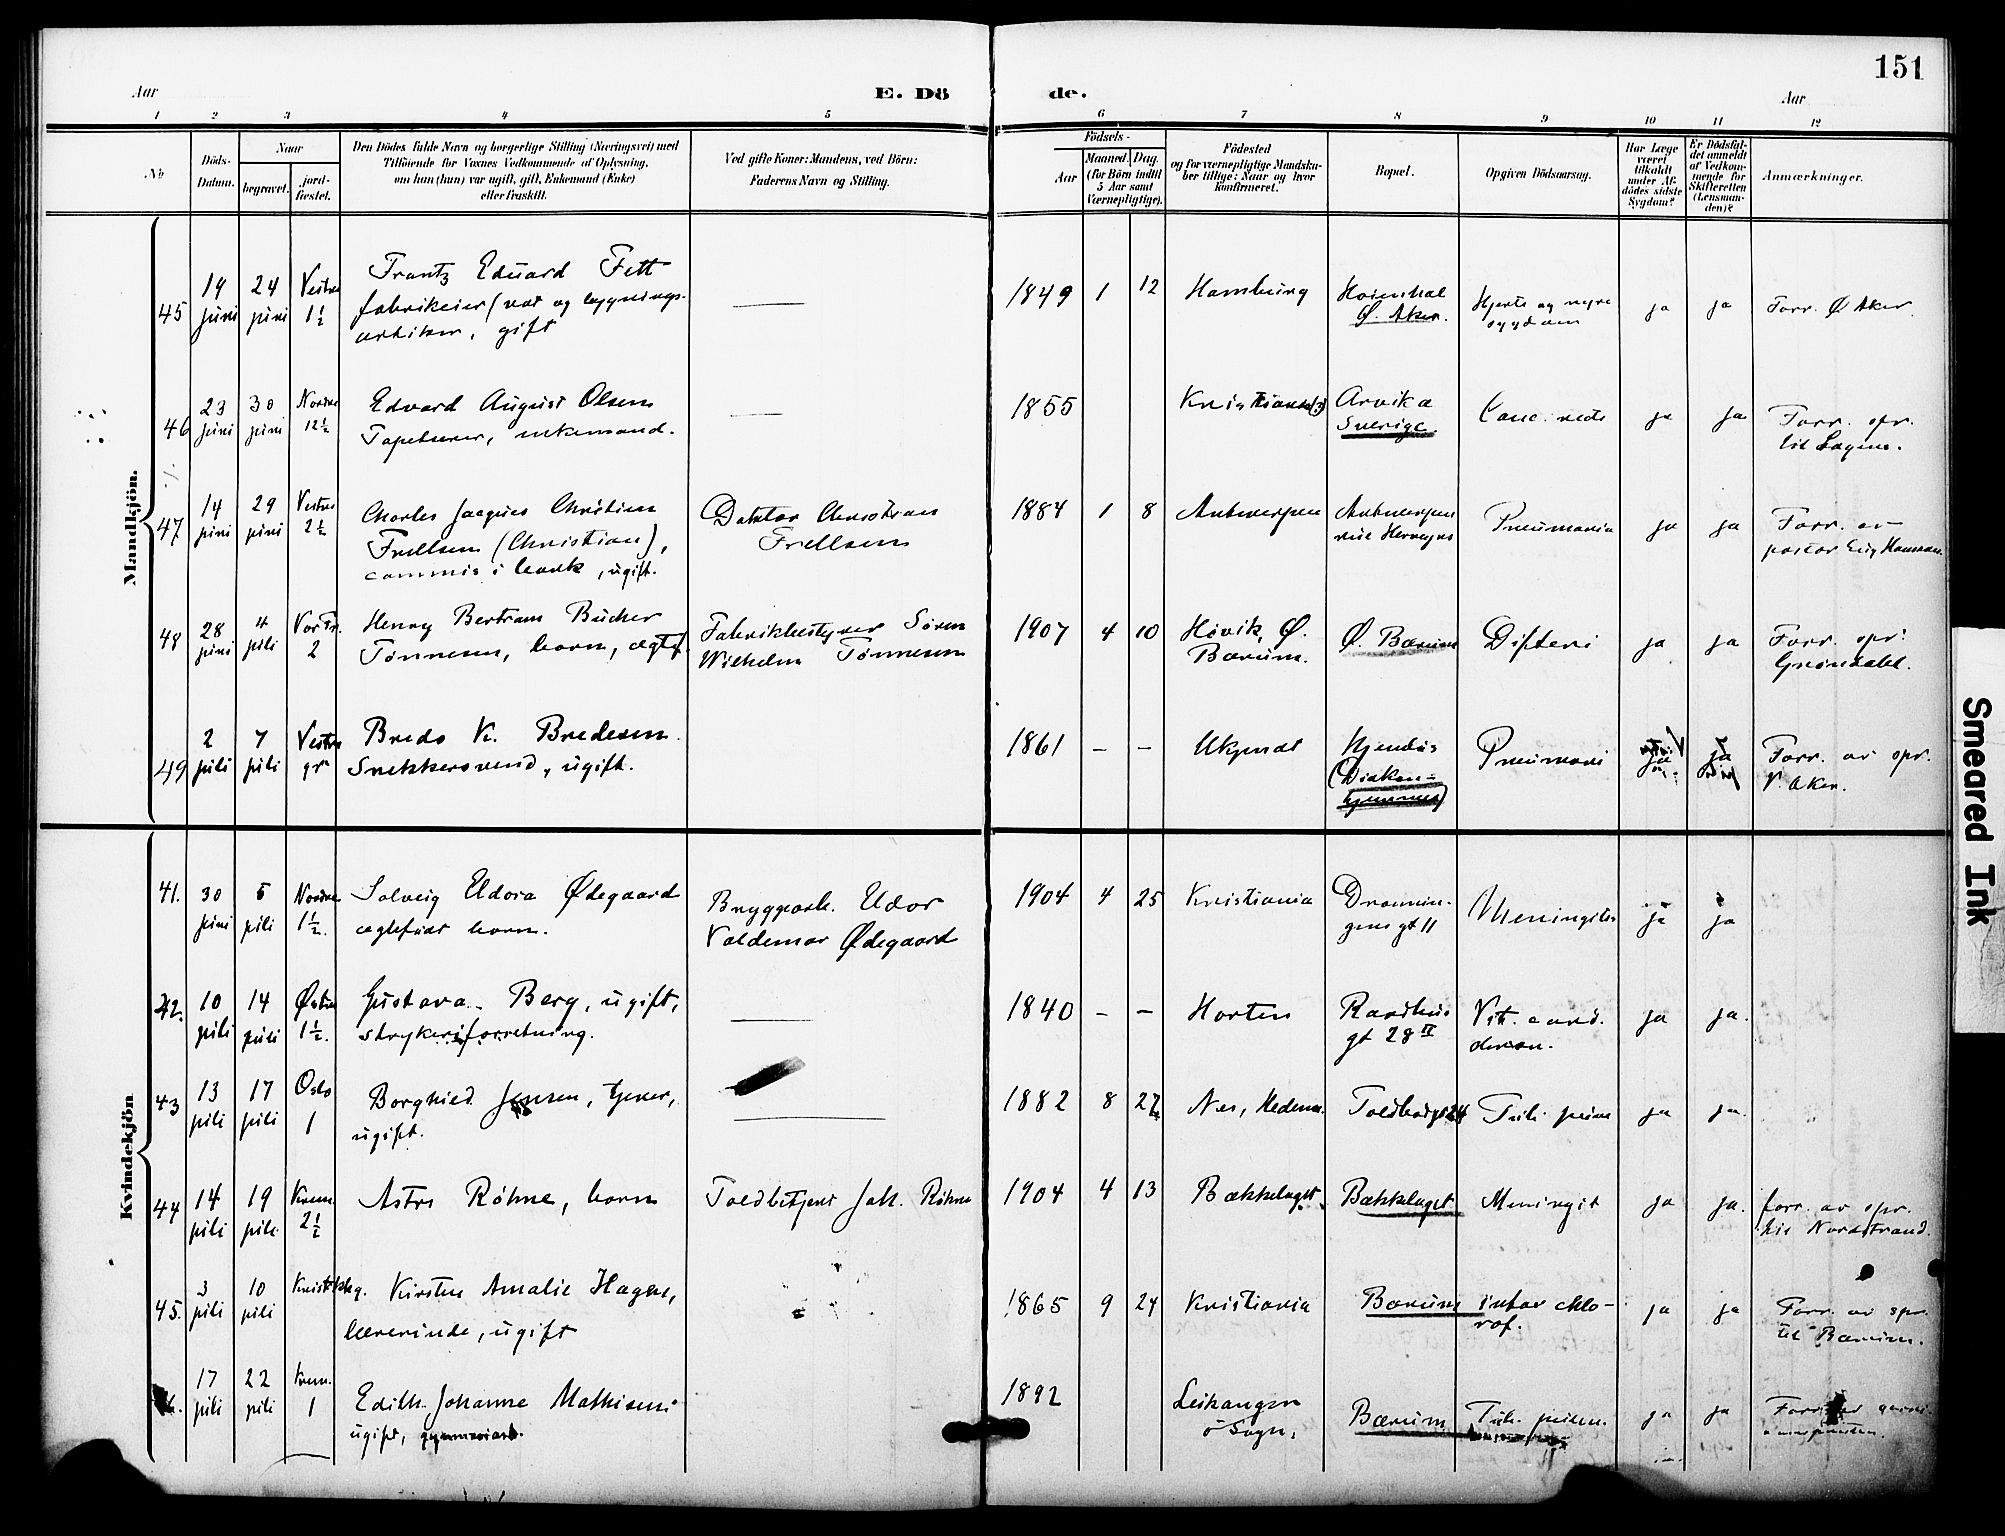 151
Aar
E. Dö
de.
Aar
1 2 3 4 5 6 7 8 9 10 11 12
No
Döds-
Datum.
Naar
begravet.
jord-
fæstet.
Den Dödes fulde Navn og borgerlige Stilling (Næringsvei) med
Tilföiende for Voxnes Vedkommende af Oplysning,
om han (hun) var ugift, gift, Enkemand (Enke)
eller fraskilt.
Ved gifte Koner: Mandens, ved Börn:
Faderens Navn og Stilling.
Födsels-
Aar
Maaned. Dag.
(for Börn indtil
5 Aar samt
Værnepligtige).
Födested
og for værnepligtige Mandska-
ber tillige: Naar og hvor
konfirmeret.
Bopæl.
Opgiven Dödsaarsag.
Har Læge
været
tilkaldt
under Af-
dødes sidste
Sygdom?
Er Dödsfal-
det anmeldt
af Vedkom-
mende for
Skifteretten
(Lensman-
den)?
Anmærkninger.
Mandkjön.
45 19 juni 24 juni Vestre 1½
Frantz Eduard Fett
fabrikeier (vat og bygnings-
artikler, gift
1849 1 12 Hamburg
Ø. Aker.
Hjerte og nyre
sygdom
ja ja Forr. Ø Aker
46 23 juni 30 juni Nordre 12½
Edvard August Olsen
Tapetserer, enkemand.
1855 Kristiania (3)
Arvika
Sverige.
ja ja
Forr. spr.
47 14 juni 29 juni Vestre 2½
Charles Jacques Christian
Frellsen (Christian),
commis i bank, ugift.
Doktor Christian
Frellsen
1884 1 8 Antwerpen
Antwerpen
Pneumonia ja ja
Forr. av
pastor
48 28 juni 4 juli Vor Fr. 2
Henry Bertram Bücher
Tønnesen, barn, ægtef.
Fabrikbestyrer Sören
Wilhelm Tønnesen
1907 4 10 Høvik, Ø.
Bærum.
Ø. Bærum Difteri ja ja
Forr. spr.
Grøndahl.
49 2 juli 7 juli Vestre gr
Bredo K. Bredesen
Snekkersvend, ugift.
1861 – – Ukjendt
(Diakon=
hjemmet)
Pneumoni ja ja
Forr. av spr.
V. Aker.
Kvindekjön
41. 30 juni 5 juli Nordre 1½.
Solveig Eldora Ødegaard
ægtefødt barn.
Bryggearb. Eldor
Valdemar Ødegaard
1904 4 25 Kristiania
Dronnin-
gens gt 11
Meningitis ja ja
42. 10 juli 14 juli Østre 1½.
Gustava Berg, ugift,
strykeriforretning.
1840 – – Horten
Raadhus
gt 28 II
Vit. cord.
ja ja.
43 13 juli 17 juli Oslo 1
Borghild Jensen, tjener,
ugift.
1882 8 27 Nes, Hedem.
Toldbodgt 24 ja ja.
44 14 juli 19 juli Krem. 2½
Astri Röhne, barn
Toldbetjent Joh. Röhne
1904 4 13 Bækkelaget.
Bækkelaget Meningit ja ja.
forr. av spr.
til Nordstrand.
45. 3 juli 10 juli
Kirsten Amalie Hagen,
lærerinde, ugift
1865 9 24 Kristiania
Bærum intox chlo-
rof.
ja ja
Forr. av spr.
til Bærum.
17 juli 22 juli Krem. 1
Edith Johanne Mathisen
ugift,
1892 Leikanger
Sogn,
Bærum ja ja
Smeared Ink